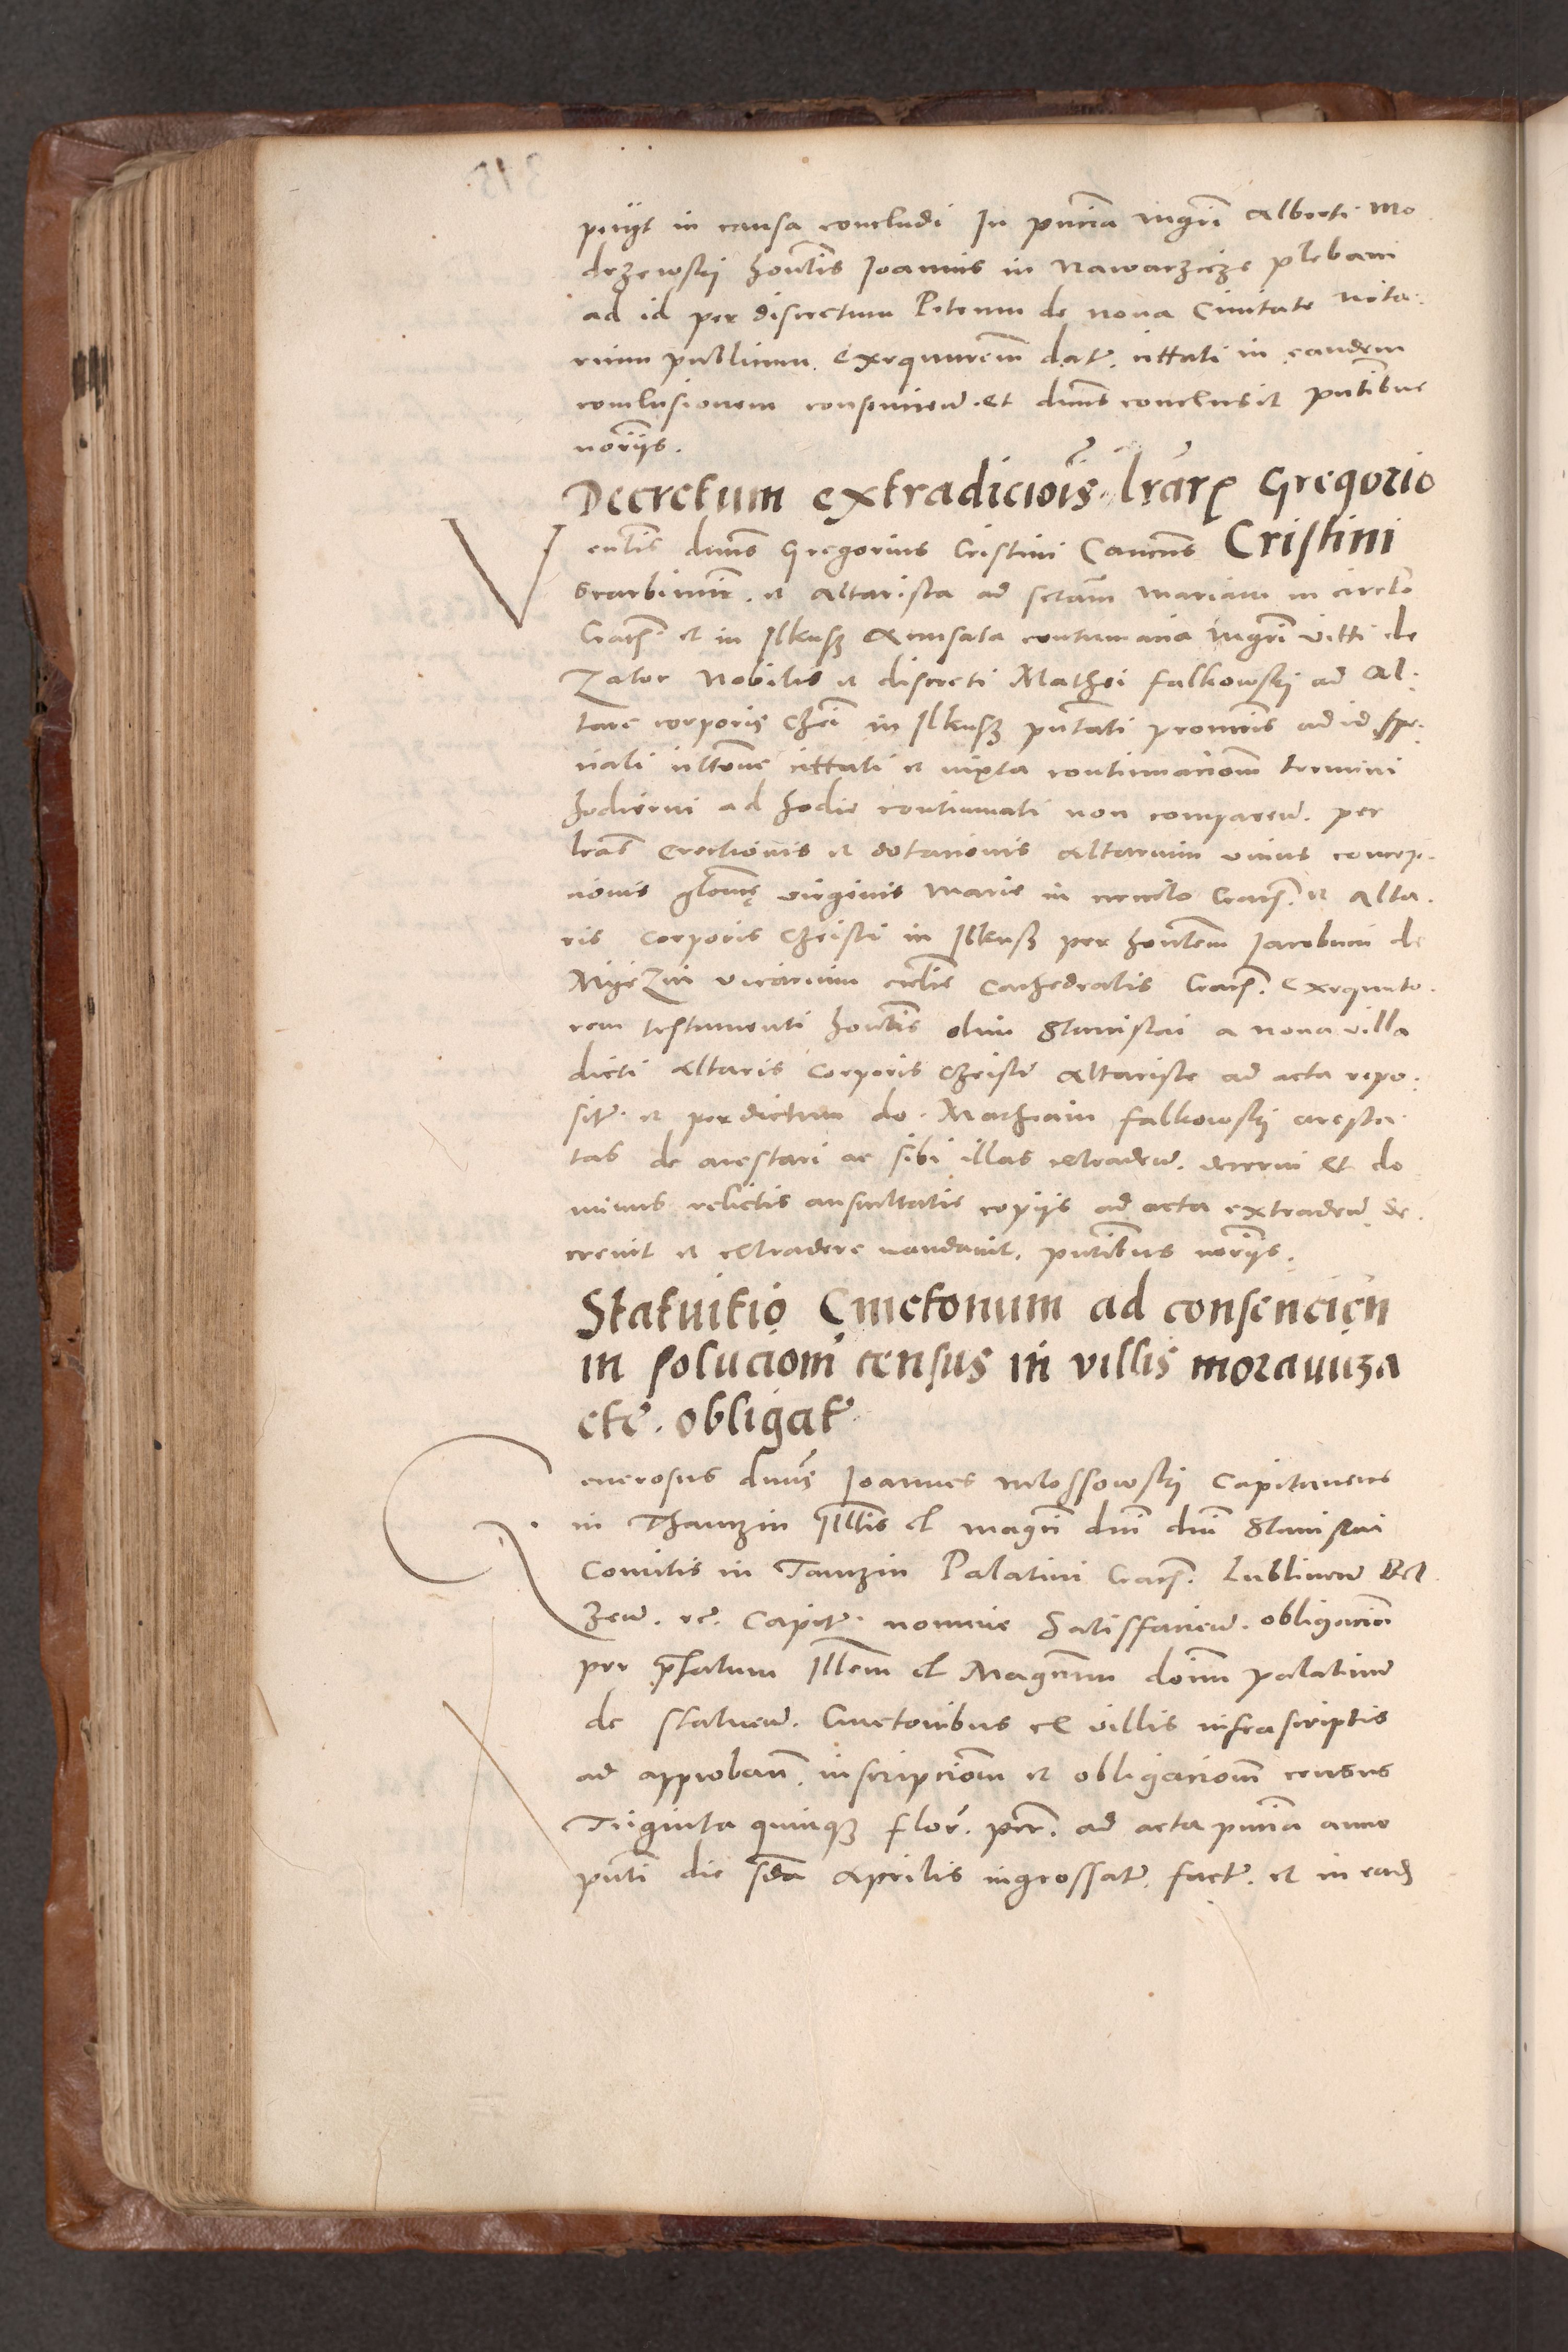 petijt in causa concludi In pñcia mgri Alberti Mo
drzewskij hon̄lis Joannis in Nawarzicze plebani
ad id per discretum Petrum de Nova Civitate nota
rium publicum. exequutorem dat. cittati in eandem
conclusionem consencien. et dnus conclusit pñtibus
norijs.
Decretum extradicionis lrarum Gregorio
Cristini
Ven̄lis dnus Gregorius Cristini Canonus
Scarbimir. et altarista ad sctam Mariam in circlo
Crac. et in Ilkusz accusata contumacia mgri Vitti de
Zator Nobilis et discreti Mathei Falkowskij ad al
tare corporis Chri in Ilkusz pñtati ad id spe
ciali cittati et iuxta continuacionem termini
hodierni ad hodie continuati non comparen. per
lras erectionis et dotacionis altarium unius concep
cionis glose virginis Marie in circulo Crac. et Alta
ris Corporis Christi in Ilkusz per hon̄lem Jacobum de
vicarium ecclie Cathedralis Crac. exequuto
rem testamenti hon̄lis olim Stanislai a nova villa
dicti altaris Corporis Christi altariste ad acta repo
sit. et per dictum do. Matheum Falkowskij aresta
tas de arestari ac sibi illas extraden. decerni Et do
minus relictis auscultatis copijs ad acta extraden de
crevit et extradere mandavit. pñtibus norijs.
Statuitio Cmetonum ad consencien
in solucionem census in villis moravicza
etc. obligat
Generosus dnus Joannes Mlossowskij Capitaneus
in Thanczin Illis et magci dni dni Stanislai
Comitis in Tanczin Palatini Crac. Lublinen Bel
zen. etc. Capit. nomine Satisfacien. obligacioni
per pfatum Illem et Magcum dominum palatinum
de statuen. Cmetonibus ex villis infrascriptis
ad approband. inscripcionem et obligacionem census
Triginta quinque flor. pecc. ad acta pñcia anno
pñti die scda Aprilis ingrossat. fact. et in ead